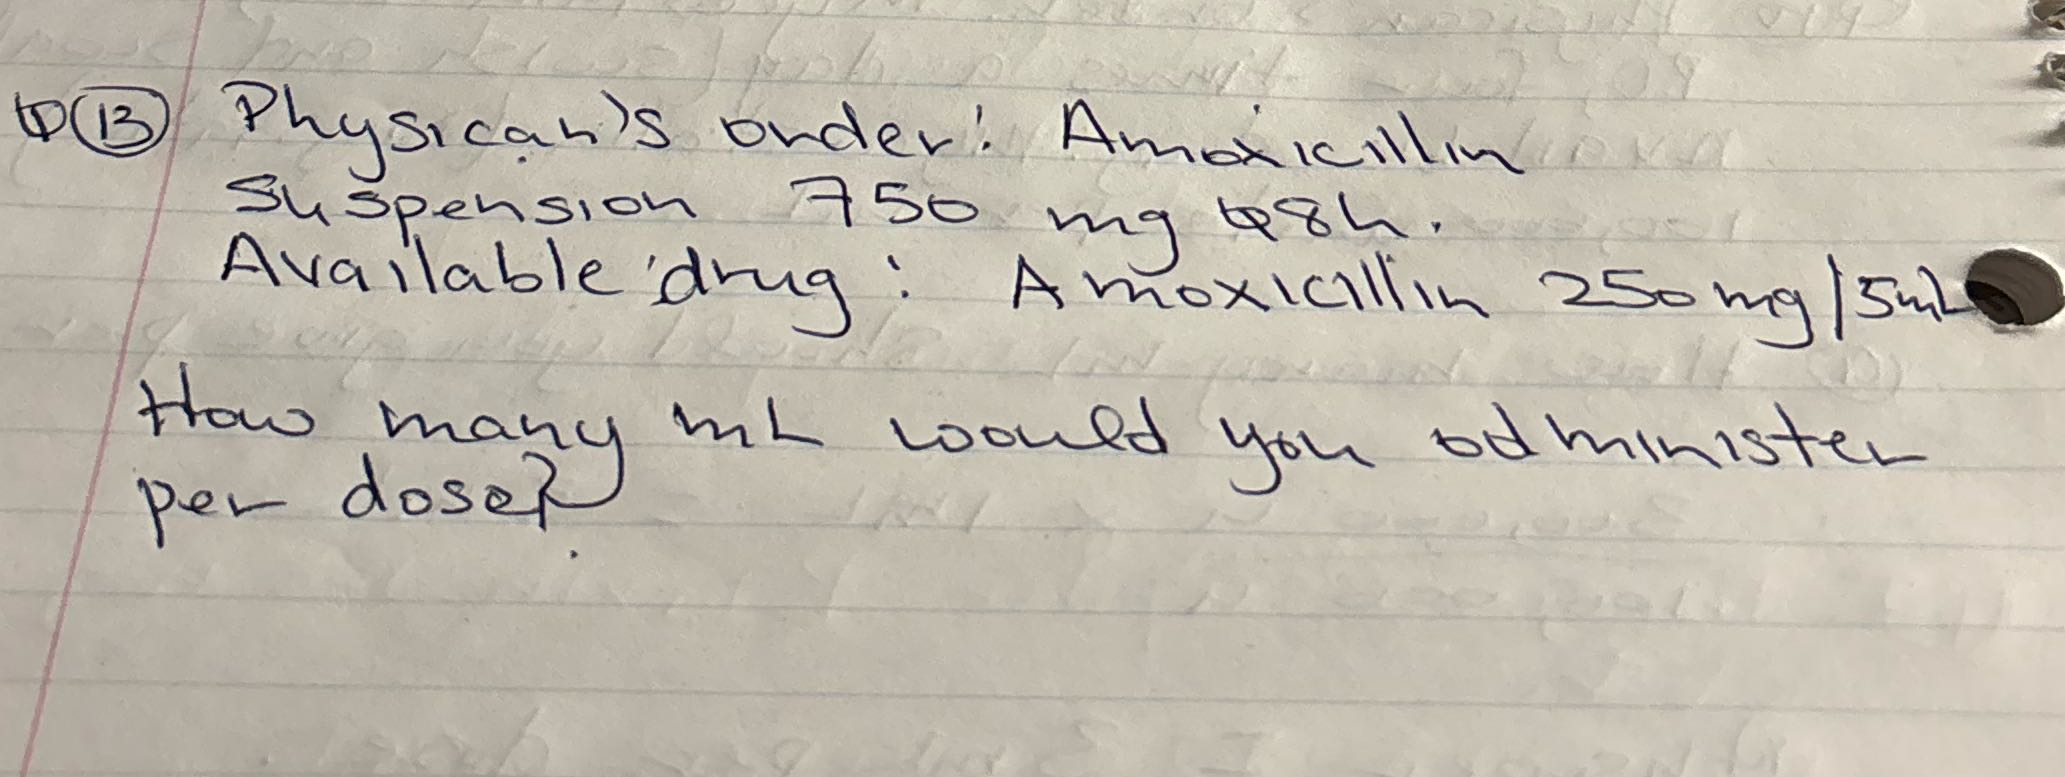 Q 13 Physican's order: Amoxicillin
Suspension 750 mg q8h.
Available drug: Amoxicillin 250mg/5mL
How many mL would you administer
per dose?